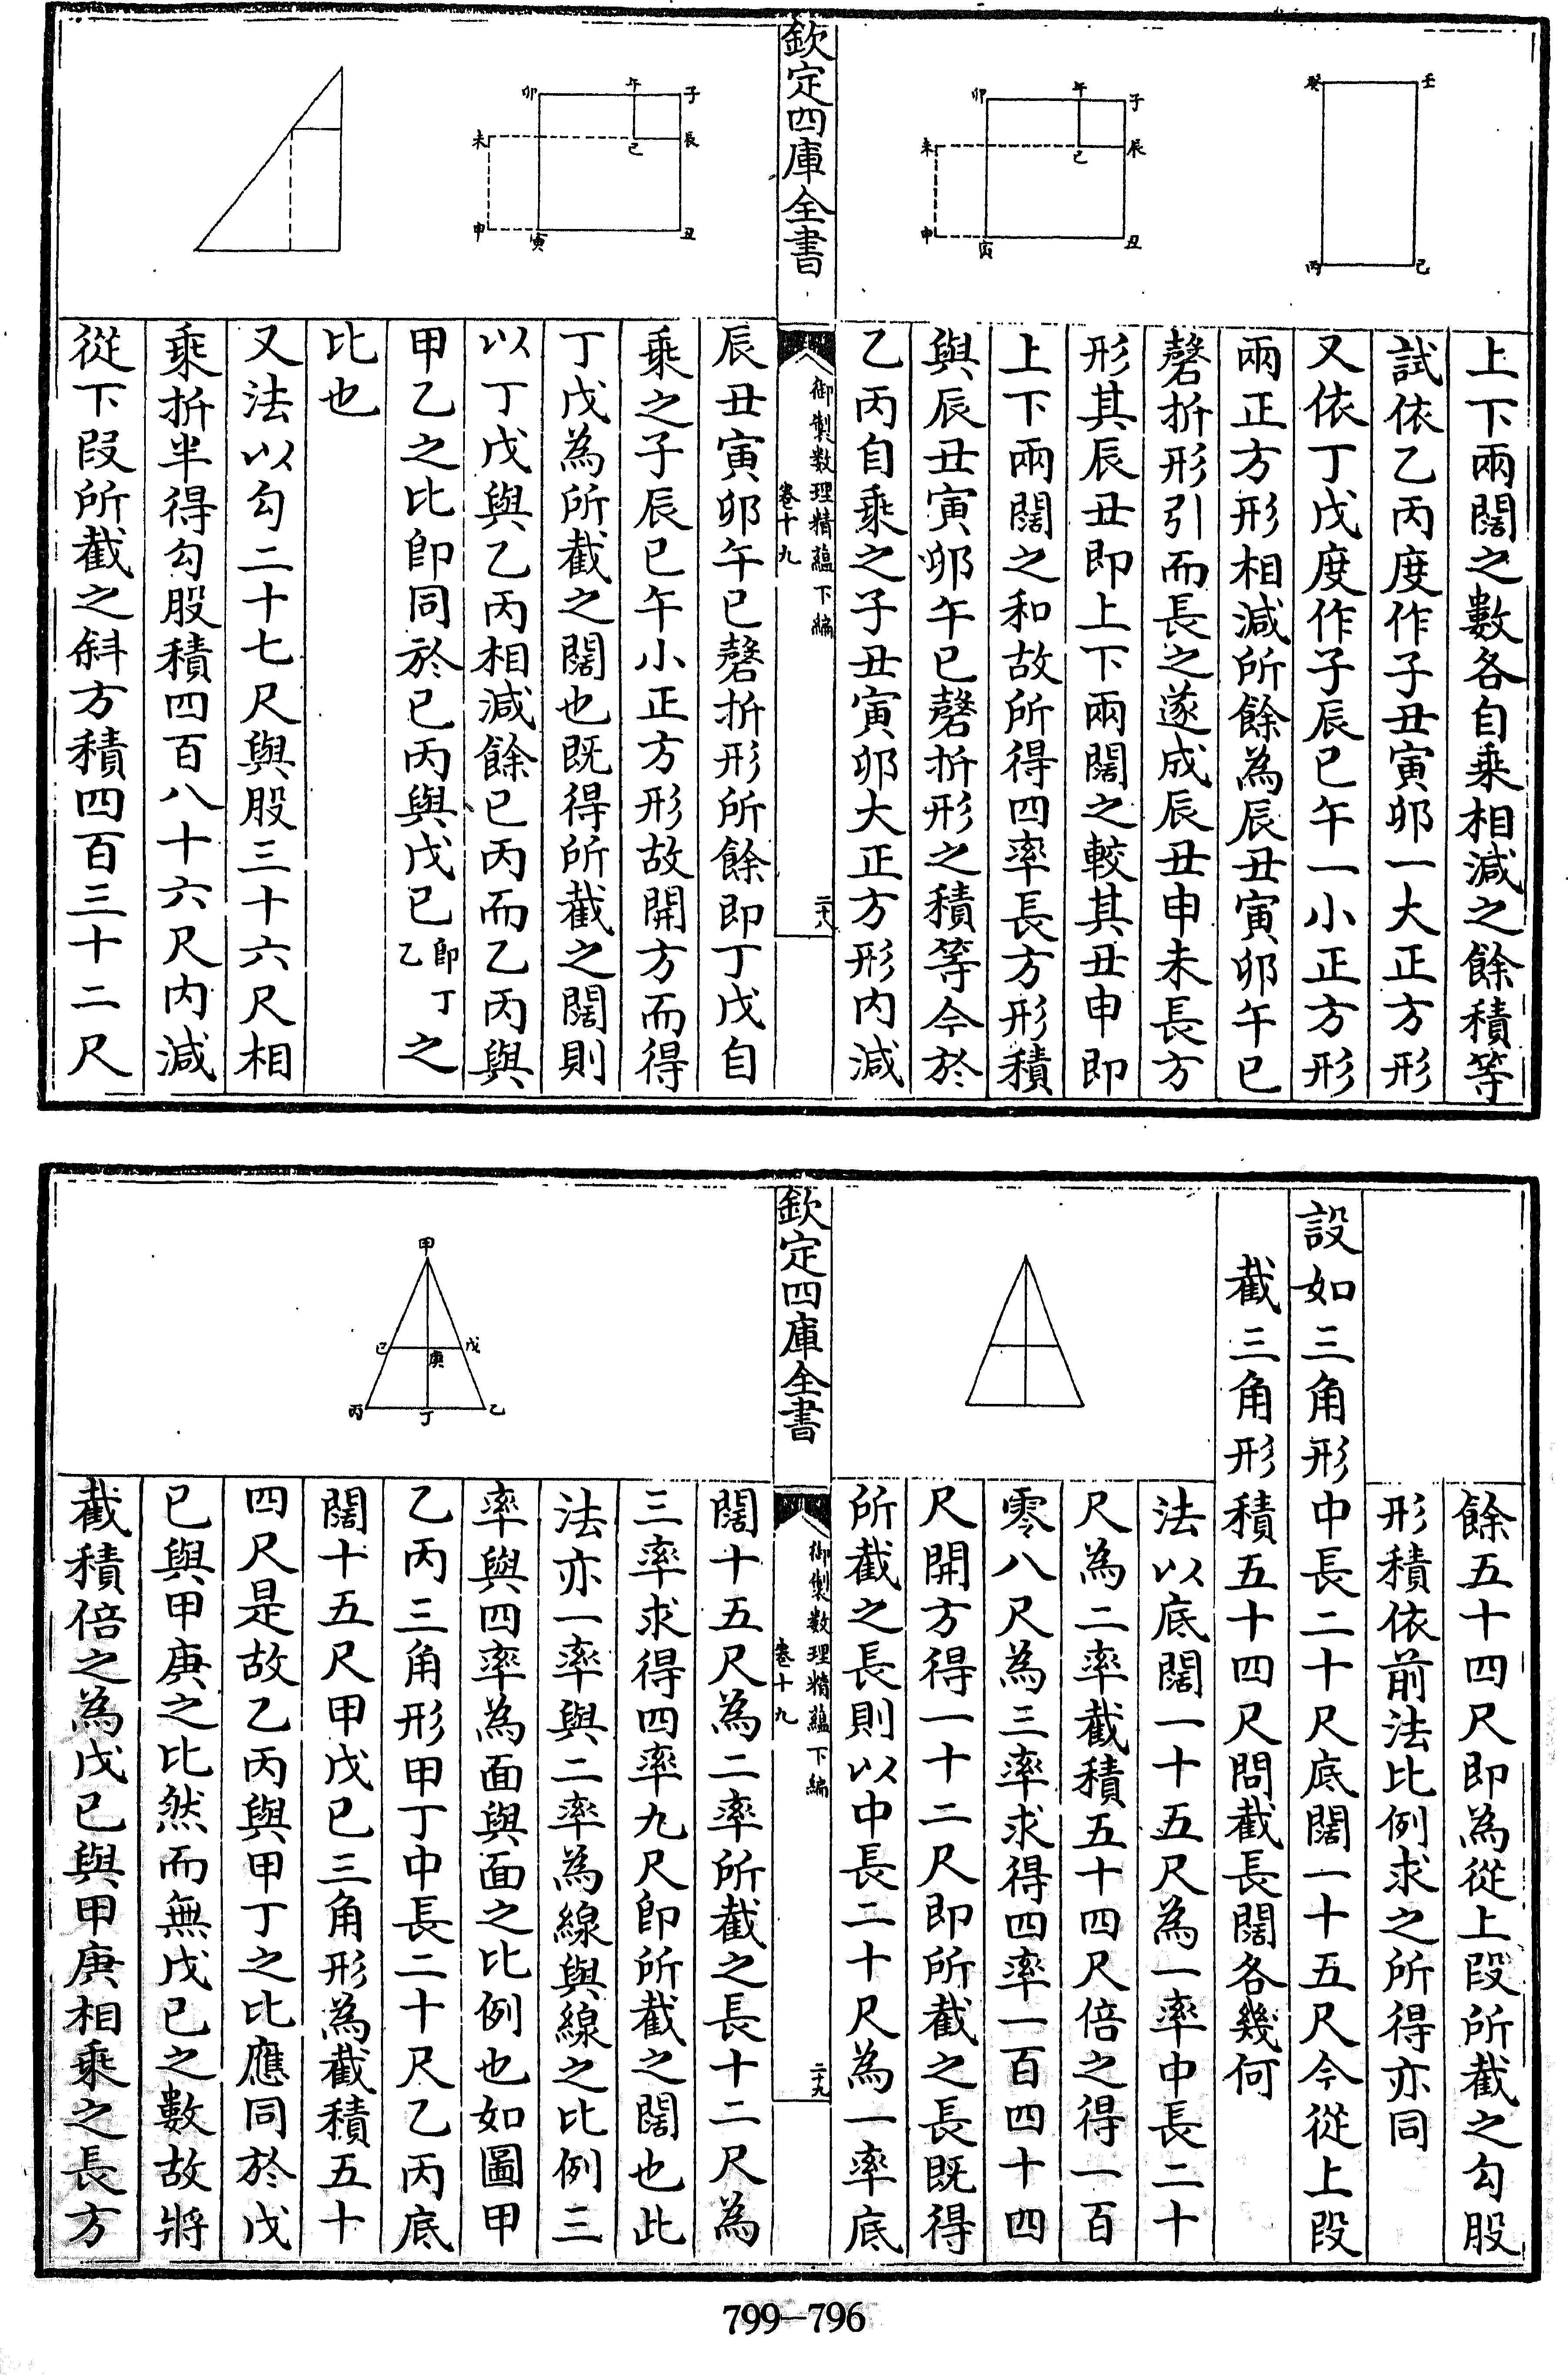 癸 壬
丙 己
卯 午 子
未 己 辰
申 寅 丑
上下兩闊之數各自乘相減之餘積等
試依乙丙度作子丑寅卯一大正方形
又依丁戊度作子辰巳午一小正方形
兩正方形相減所餘為辰丑寅卯午巳
磬折形引而長之遂成辰丑申未長方
形其辰丑即上下兩闊之較其丑申即
上下兩闊之和故所得四率長方形積
與辰丑寅卯午巳磬折形之積等今於
乙丙自乘之子丑寅卯大正方形内減
欽定四庫全書
御製數理精蘊下編
卷十九
二十八
卯 午 子
未 己 辰
申 寅 丑
辰丑寅卯午巳磬折形所餘即丁戊自
乘之子辰巳午小正方形故開方而得
丁戊為所截之闊也既得所截之闊則
以丁戊與乙丙相減餘己丙而乙丙與
甲乙之比卽同於己丙與戊己卽丁乙之
比也
又法以勾二十七尺與股三十六尺相
乘折半得勾股積四百八十六尺内減
從下段所截之斜方積四百三十二尺
餘五十四尺即為從上段所截之勾股
形積依前法比例求之所得亦同
設如三角形中長二十尺底闊一十五尺今從上段
截三角形積五十四尺問截長闊各幾何
法以底闊一十五尺為一率中長二十
尺為二率截積五十四尺倍之得一百
零八尺為三率求得四率一百四十四
尺開方得一十二尺即所截之長既得
所截之長則以中長二十尺為一率底
欽定四庫全書
御製數理精蘊下編
卷十九
二十九
甲
己 庚 戊
丙 丁 乙
闊十五尺為二率所截之長十二尺為
三率求得四率九尺卽所截之闊也此
法亦一率與二率為線與線之比例三
率與四率為面與面之比例也如圖甲
乙丙三角形甲丁中長二十尺乙丙底
闊十五尺甲戊己三角形為截積五十
四尺是故乙丙與甲丁之比應同於戊
己與甲庚之比然而無戊己之數故將
截積倍之為戊己與甲庚相乘之長方
799-796